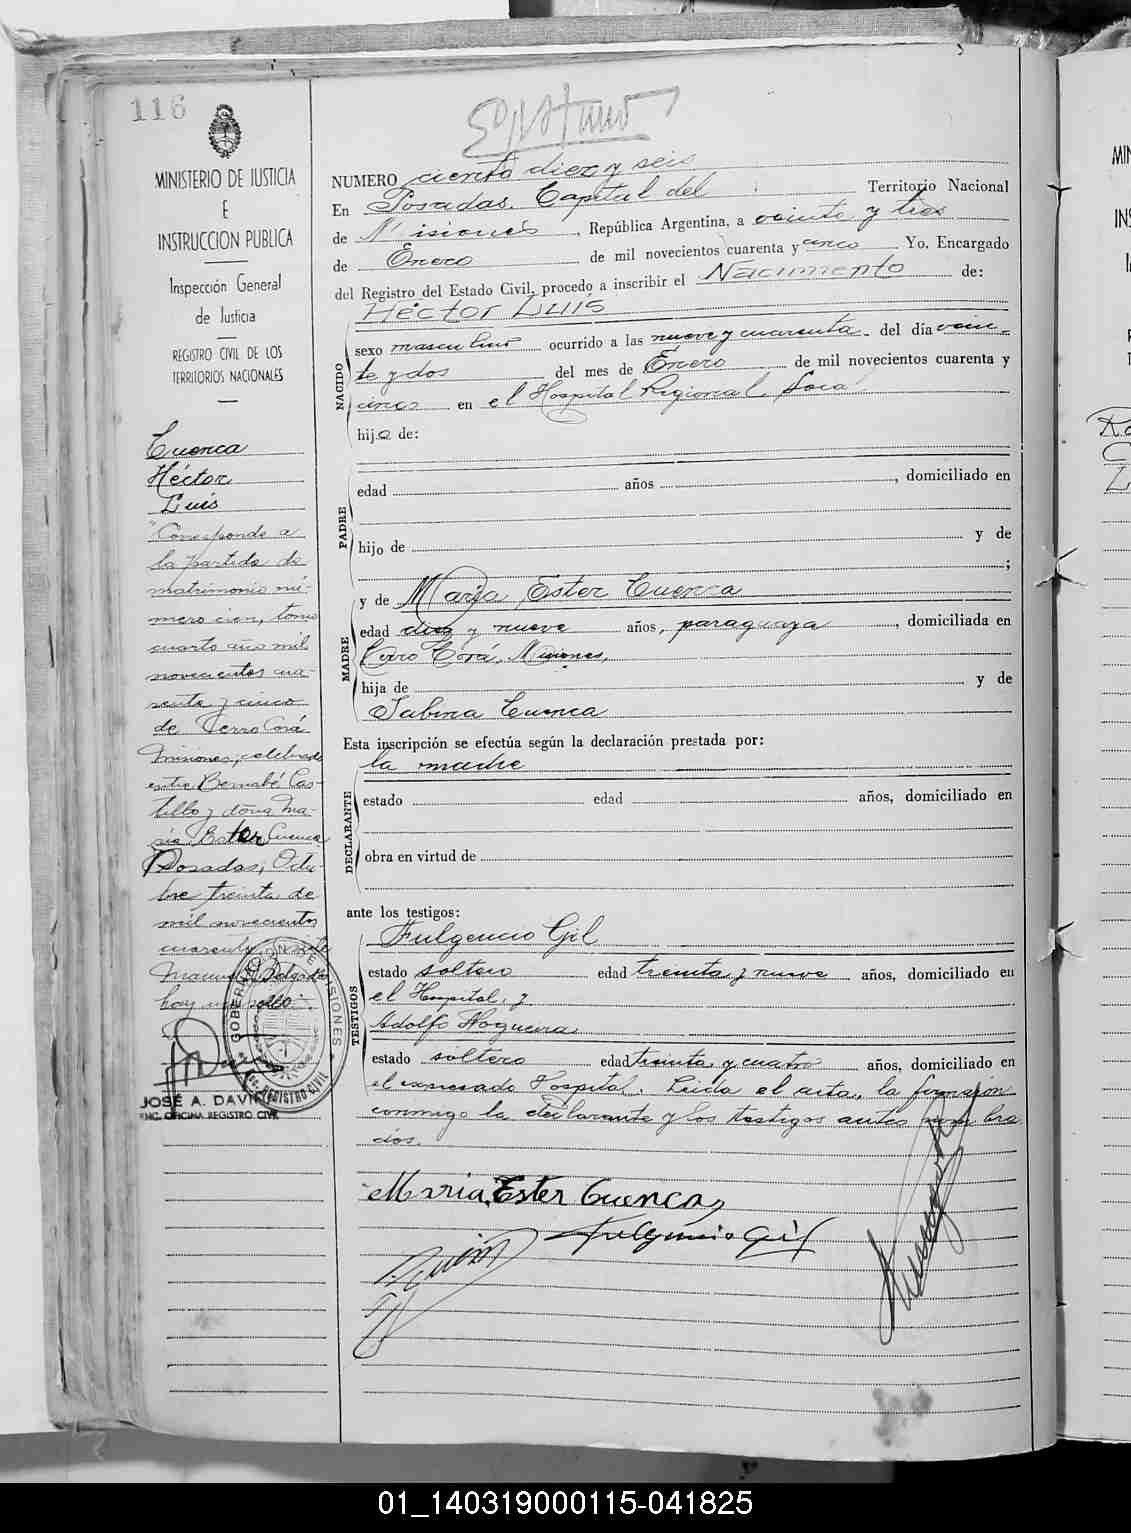 116
MINISTERIO DE JUSTICIA
E
INSTRUCCION PUBLICA
Inspección General
de Justicia
REGISTRO CIVIL DE LOS
TERRITORIOS NACIONALES
Cuenca
Héctor
Luis
"Corresponde a
la partida de
matrimonio nú-
mero cien, tomo
cuarto año mil
novecientos cua-
renta y cinco
de Cerro Corá
Misiones, celebrado
entre Bernabé Cas-
tillo y doña Ma-
ria Ester Cuenca
Posadas, Octu-
bre treinta de
mil novecientos
cuarenta
Manuel Delgado
hay un sello".
GOBERNACION DE MISIONES
REGISTRO CIVIL
JOSÉ A. DAVI
ENC. OFICINA REGISTRO CIVIL
NUMERO ciento diez y seis
En Posadas, Capital del Territorio Nacional
de Misiones, República Argentina, a veinte y tres
de Enero de mil novecientos cuarenta y cinco Yo. Encargado
del Registro del Estado Civil, procedo a inscribir el Nacimiento de:
Héctor Luis
NACIDO
sexo masculino ocurrido a las nueve y cuarenta del día vein-
te y dos del mes de Enero de mil novecientos cuarenta y
cinco en el Hospital Regional local
hijo de:
PADRE
edad años , domiciliado en
hijo de y de
;
MADRE
y de Maria Ester Cuenca
edad diez y nueve años, paraguaya , domiciliada en
Cerro Corá, Misiones,
hija de y de
Sabina Cuenca
Esta inscripción se efectúa según la declaración prestada por:
la madre
DECLARANTE
estado edad años, domiciliado en
obra en virtud de
ante los testigos:
TESTIGOS
Fulgencio Gil
estado soltero edad treinta y nueve años, domiciliado en
el Hospital, y
Adolfo Nogueira
estado soltero edad treinta y cuatro años, domiciliado en
el expresado Hospital. Leida el acta, la firmaron
conmigo la declarante y los testigos antes nombra
dos.
Maria Ester Cuenca
Fulgencio Gil
01_140319000115-041825